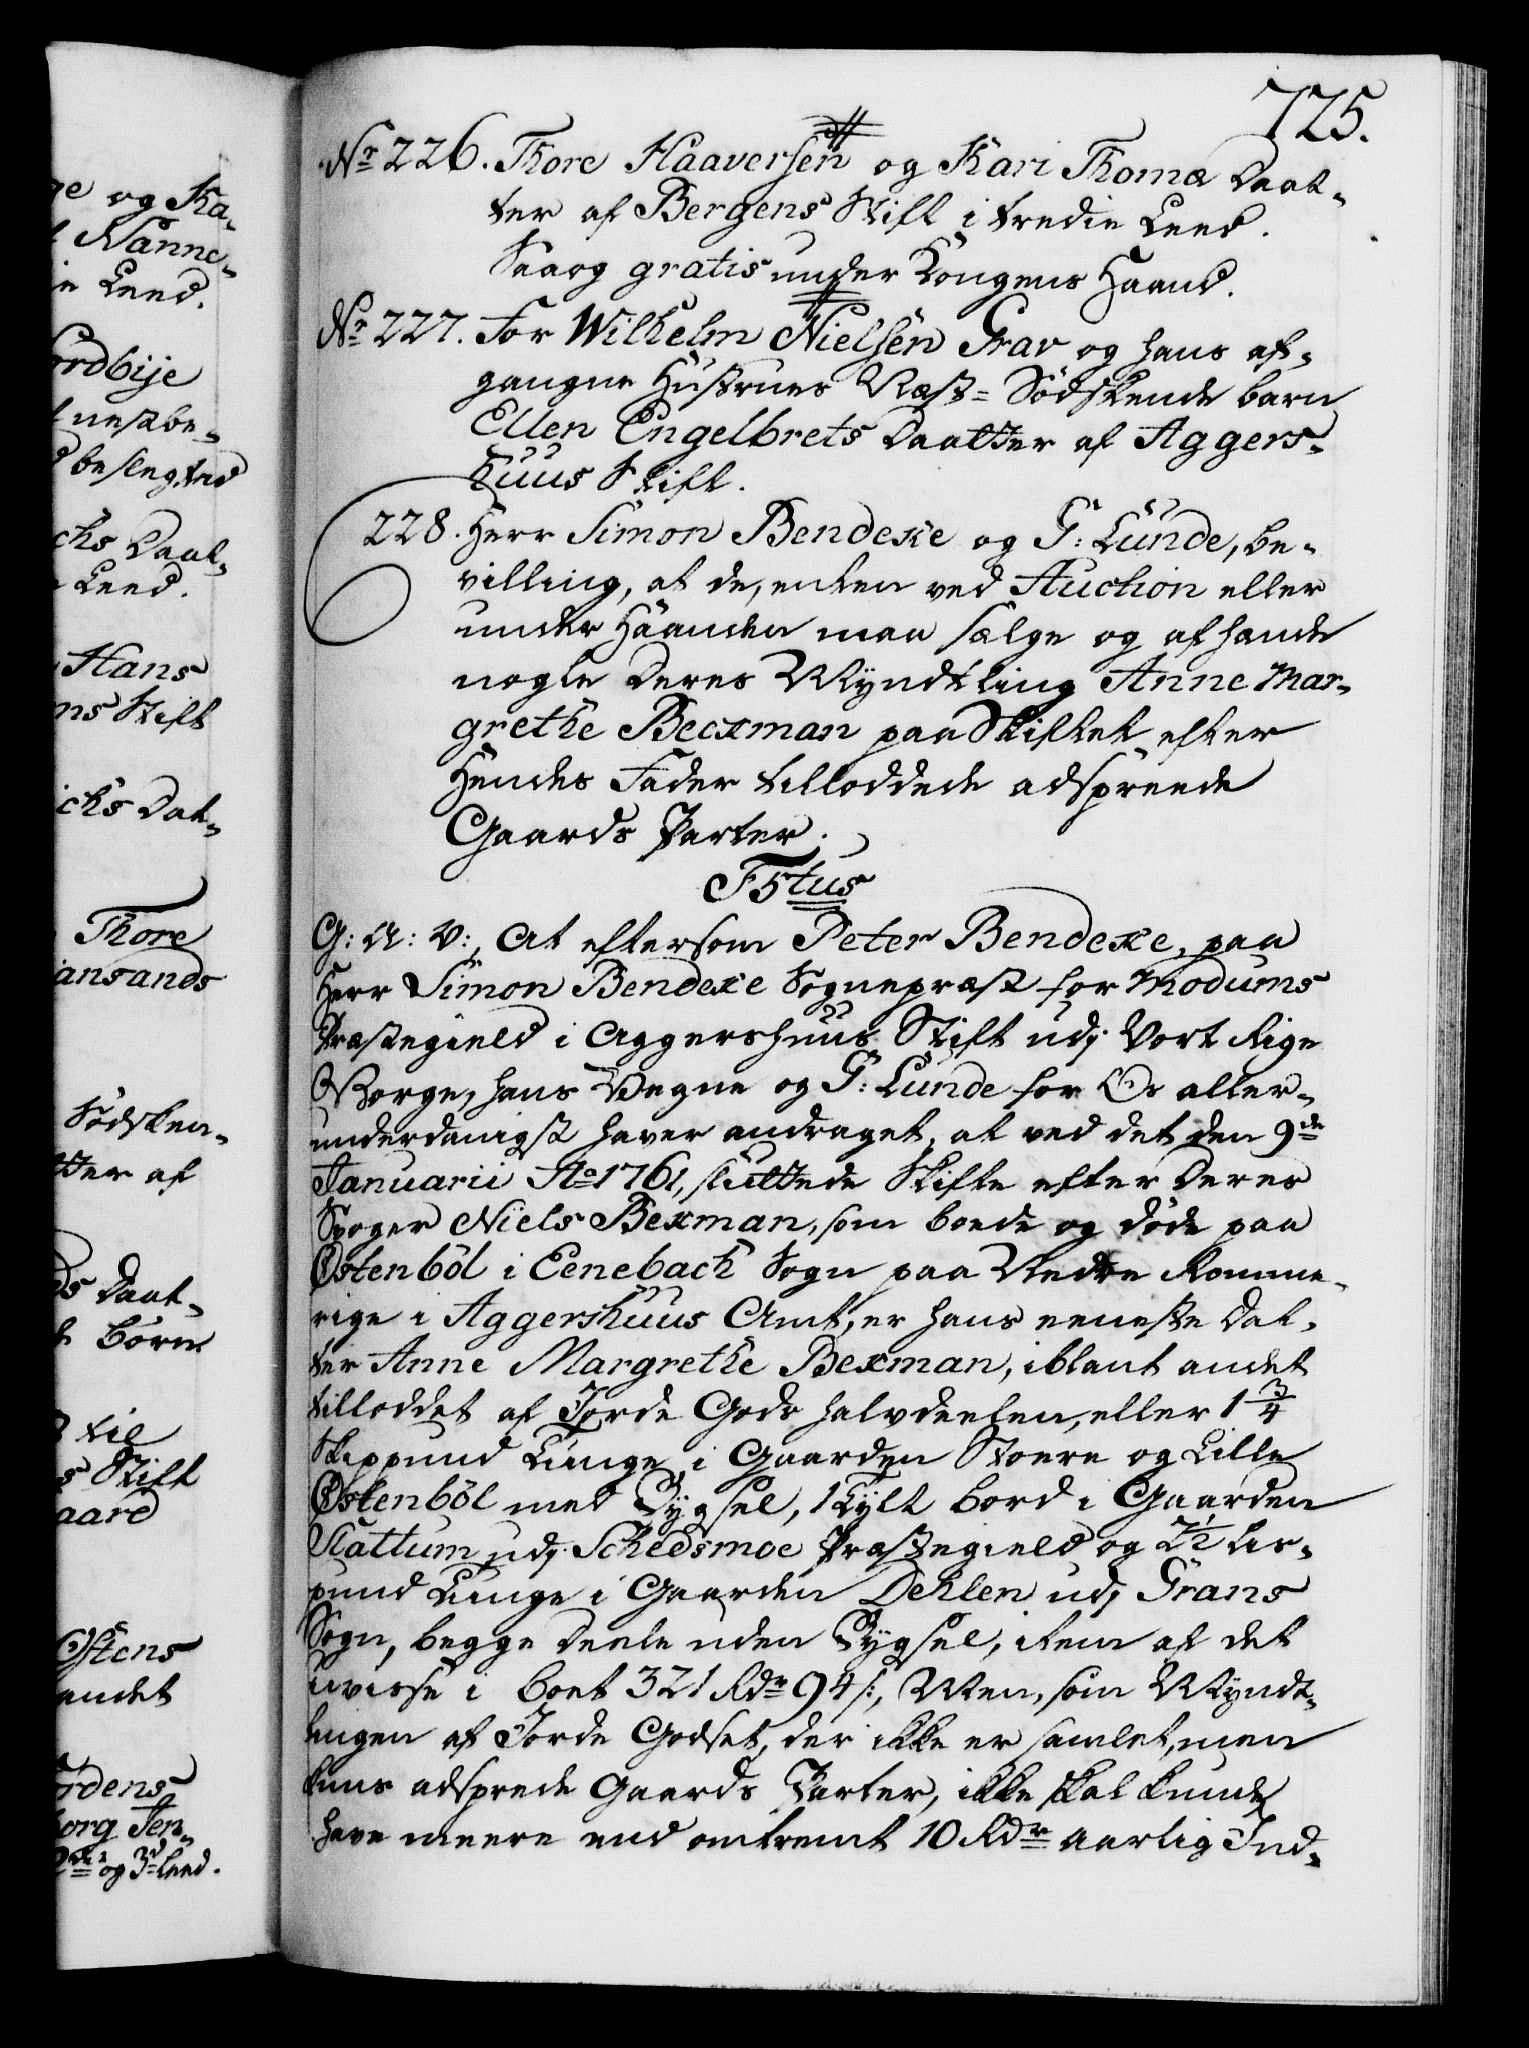 725.
No 226. Thore Haaversen og Kari Thomæ Daat-
ter af Bergens Stift i tredie Leed.
Saaog gratis under Kongens Haand.
No 227. For Wilhelm Nielsen Grav og hans af-
gangne Hustrues Næst-Södskende barn
Ellen Engelbrets Daatter af Aggers-
huus Stift.
228. Herr Simon Bendeke og G: Lunde, be-
villing, at de, enten ved Auction eller
under Haanden maa sælge og afhænde
nogle deres Myndtling Anne Mar-
grethe Beckman paa Skiftet efter
Hendes Fader tilloddede adspreede
Gaards Parter.
F5tus
G: A: V:, At eftersom Peter Bendeke, paa
Herr Simon Bendeke Sognepræst for Modums
Præstegield i Aggershuus Stift udj Vort Rige
Norge, hans Vegne og G: Lunde for Os aller-
underdanigst haver andraget, at ved det den 9de
Januarii Ao 1761, sluttede Skifte efter deres
Svoger Niels Bekman, som boede og döde paa
Östenböl i Eenebach Sogn paa Nedre Romme-
rige i Aggershuus Amt, er hans eeneste Dat-
ter Anne Margrethe Bekman, iblant andet
tilloddet af Jorde Gods halvdeelen, eller 1 3/4
Skippund Tunge, i Gaarden Stoere og Lille
Östenböl med Bygsel, 1 Tylt bord i Gaarden
Slattum udj Schedsmoe Præstegield og 2 1/2 Lis-
pund Tunge i Gaarden Dehlen udj Grans
Sogn, begge Deele uden Bygsel, item af det
uvisse i Boet 321 Rdr 94 s:, Men, som Myndt-
lingen af Jorde Godset, der ikke er samlet, men
kuns adsprede Gaards Parter, ikke skal kunde
have meere end omtrent 10 Rdr aarlig Ind-